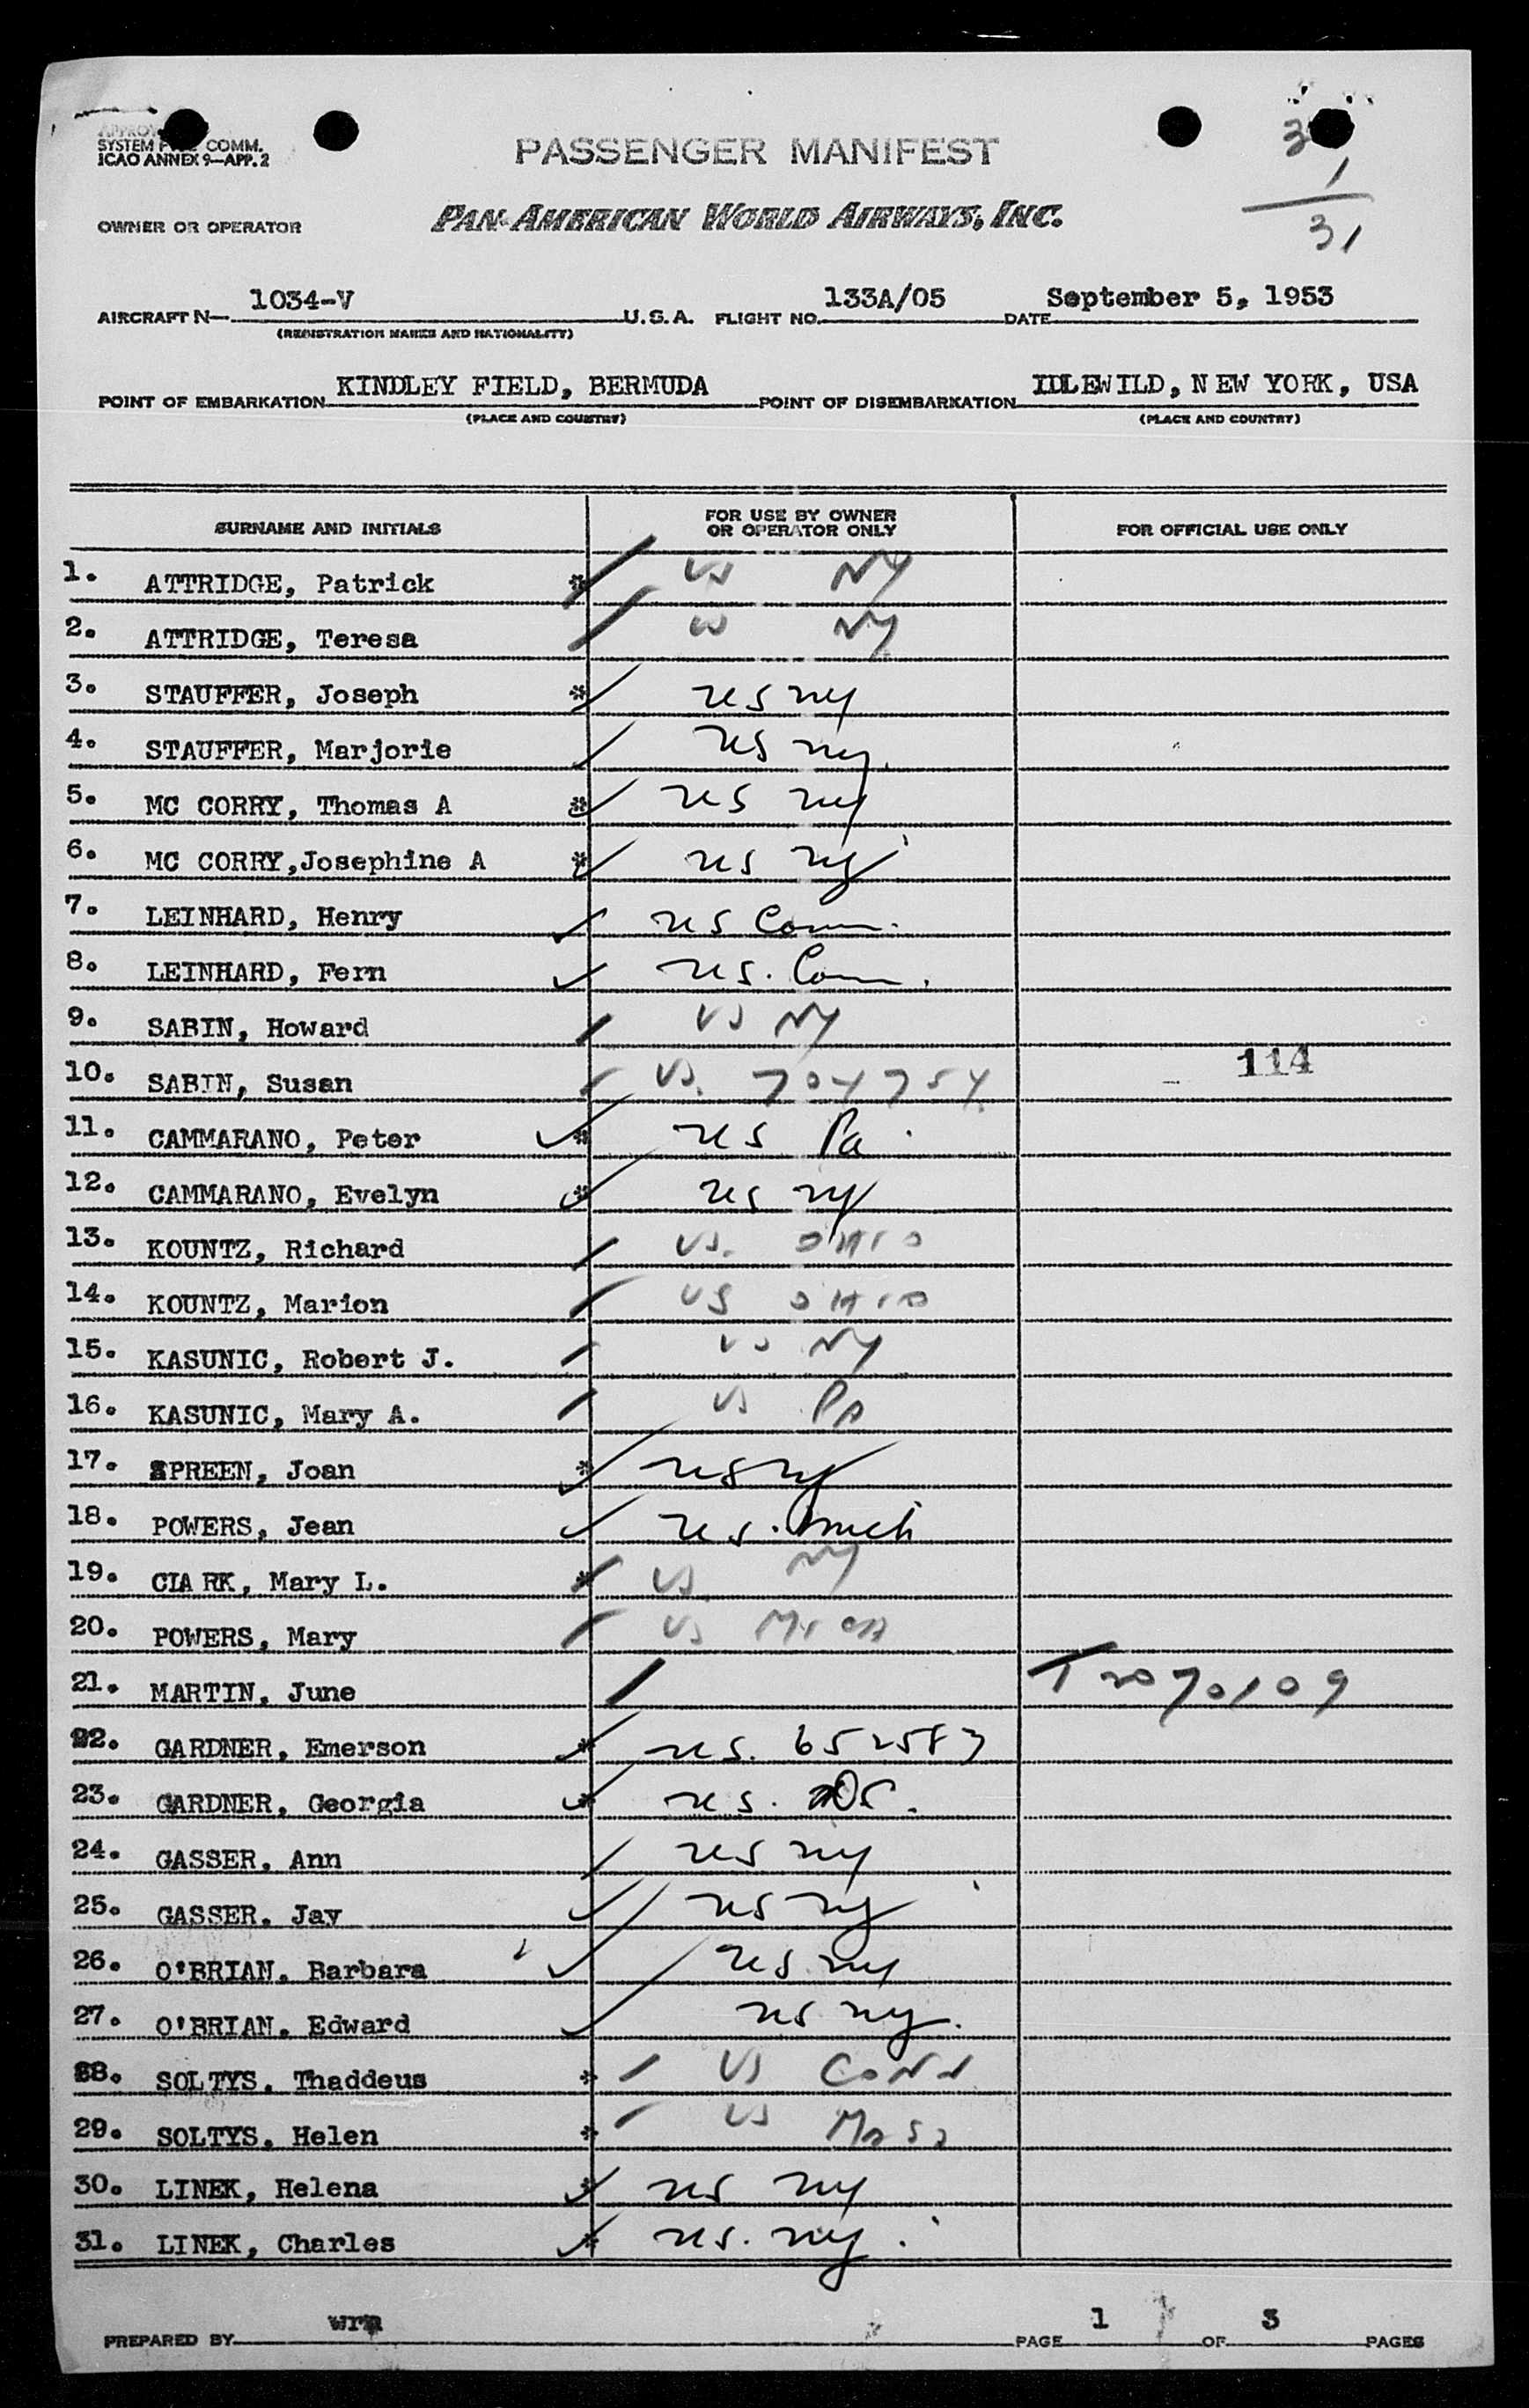 SYSTEM COMM.
ICAO ANNEX 9—APP. 2
PASSENGER MANIFEST
1
31
OWNER OR OPERATOR PAN AMERICAN WORLD AIRWAYS, INC.
AIRCRAFT N— 1034-V U.S.A. FLIGHT NO. 133A/05 DATE September 5, 1953
(REGISTRATION MARKS AND NATIONALITY)
POINT OF EMBARKATION KINDLEY FIELD, BERMUDA POINT OF DISEMBARKATION IDLEWILD, NEW YORK, USA
(PLACE AND COUNTRY) (PLACE AND COUNTRY)
SURNAME AND INITIALS FOR USE BY OWNER OR OPERATOR ONLY FOR OFFICIAL USE ONLY
1. ATTRIDGE, Patrick * US NY
2. ATTRIDGE, Teresa US NY
3. STAUFFER, Joseph * US NY
4. STAUFFER, Marjorie US NY.
5. MC CORRY, Thomas A * US NY
6. MC CORRY,Josephine A * US NY
7. LEINHARD, Henry US Conn.
8. LEINHARD, Fern US. Conn.
9. SABIN, Howard US NY
10. SABIN, Susan US. 704754 114
11. CAMMARANO, Peter * US Pa.
12. CAMMARANO, Evelyn * US NY
13. KOUNTZ, Richard US. OHIO
14. KOUNTZ, Marion US OHIO
15. KASUNIC, Robert J. US NY
16. KASUNIC, Mary A. US PA
17. SPREEN, Joan * US NY
18. POWERS, Jean US. Mich
19. CLARK, Mary L. * US NY
20. POWERS, Mary US MICH
21. MARTIN, June T2070109
22. GARDNER, Emerson * US. 652583
23. GARDNER, Georgia * US.
24. GASSER, Ann US NY
25. GASSER, Jay US NY
26. O'BRIAN, Barbara US NY
27. O'BRIAN, Edward US NY.
28. SOLTYS, Thaddeus * US CONN
29. SOLTYS, Helen * US Mass
30. LINEK, Helena * US NY
31. LINEK, Charles * US. NY.
PREPARED BY PAGE 1 OF 3 PAGES